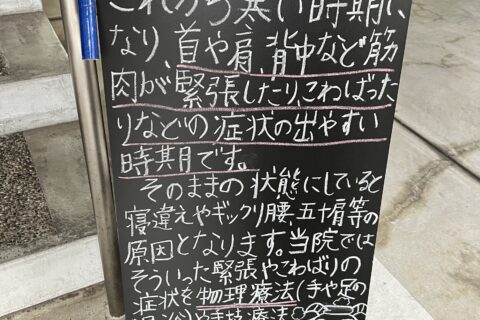 これから寒い時期に
なり、首や肩、背中など筋
肉が緊張したり、こわばった
りなどの症状の出やすい
時期です。
そのままの状態にしていると
寝違えやギックリ腰、五十肩等の
原因となります。当院では
そういった緊張やこわばりの
症状を物理療法(手や足の